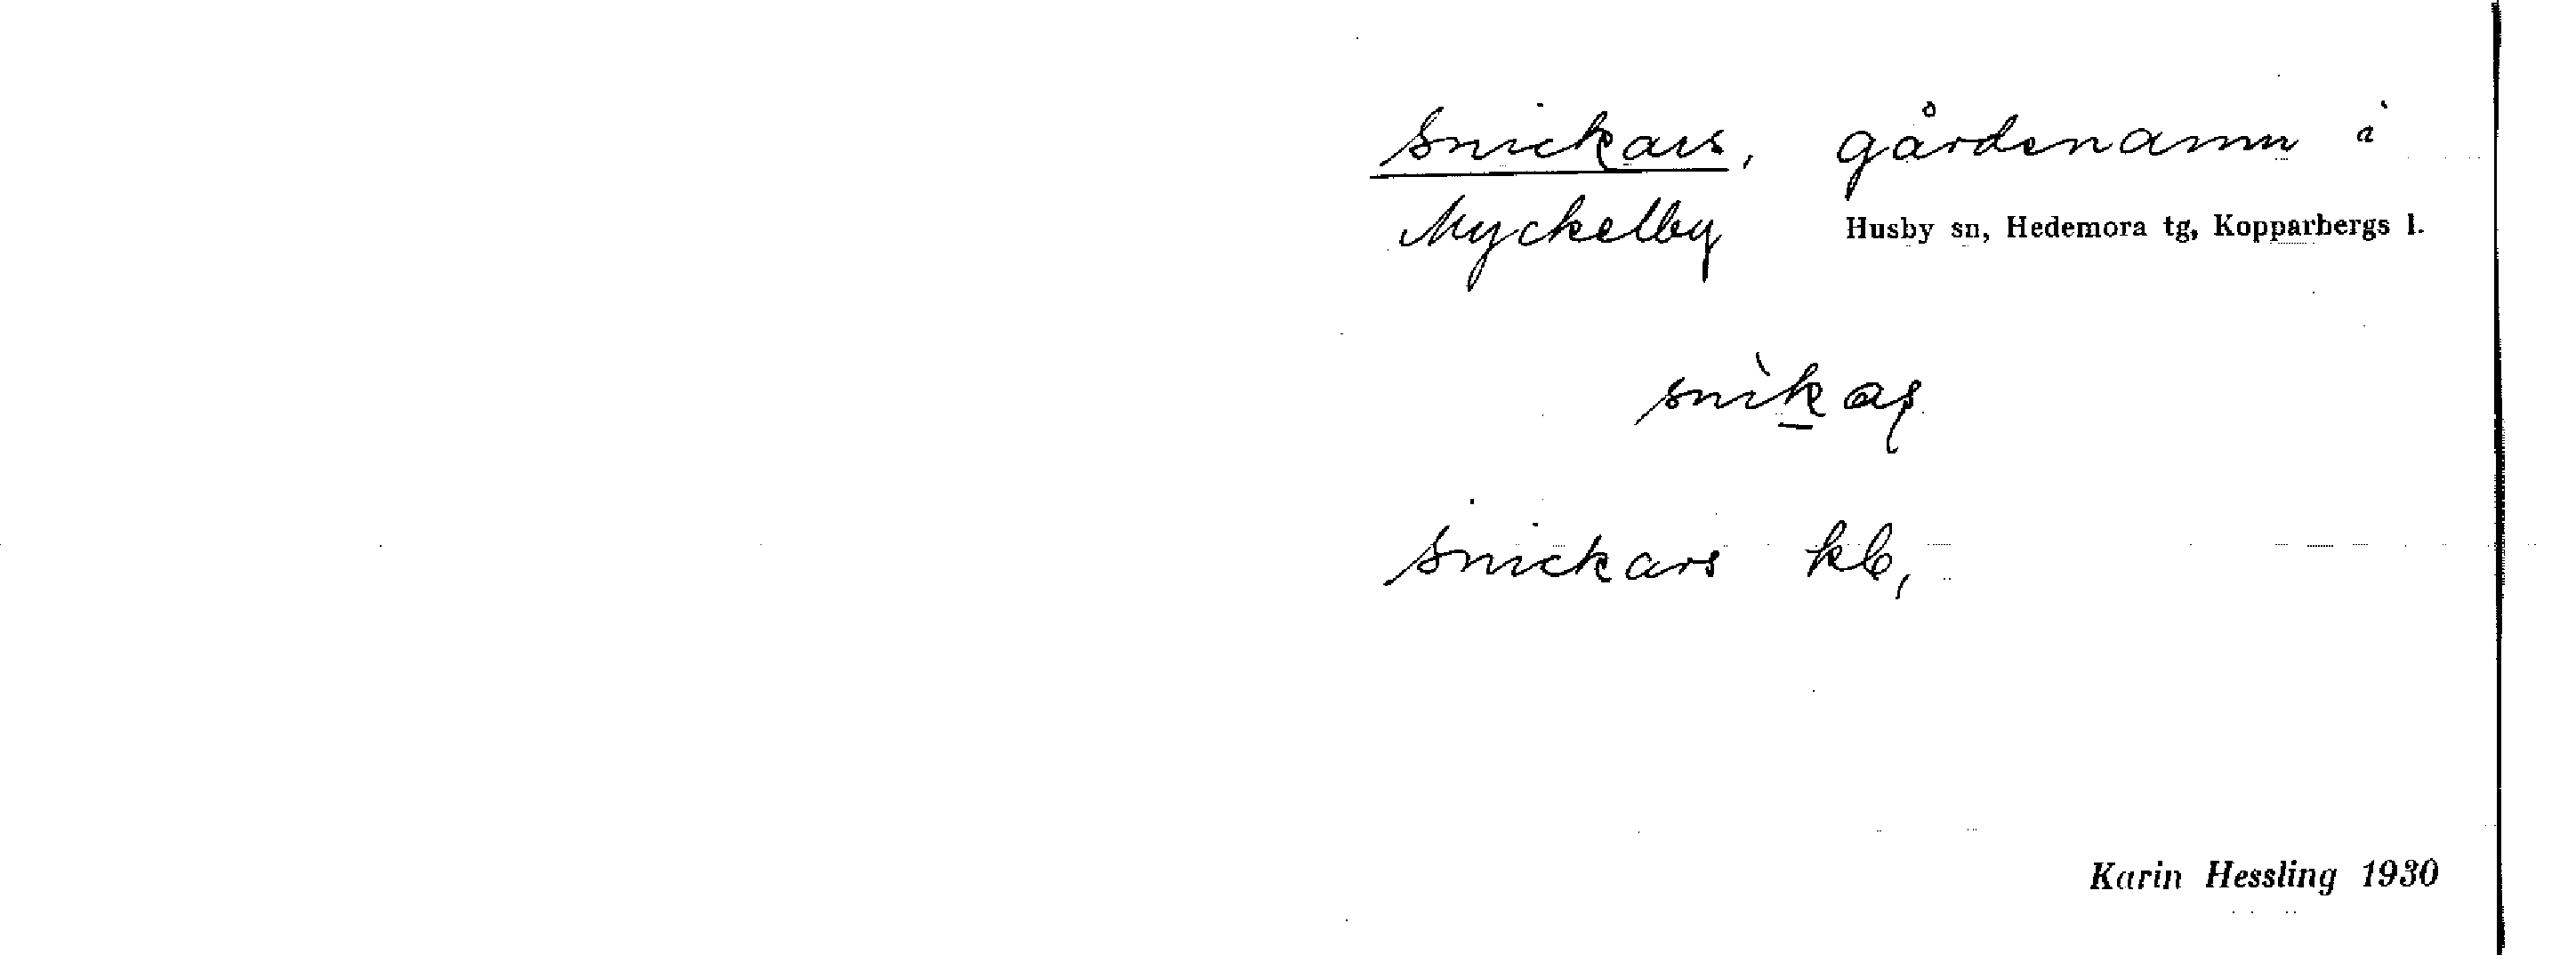 Snickars, gårdsnamn i
Myckelby Husby sn, Hedemora tg, Kopparbergs l.
snìk̲aʂ
Snickars kb,
Karin Hessling 1930